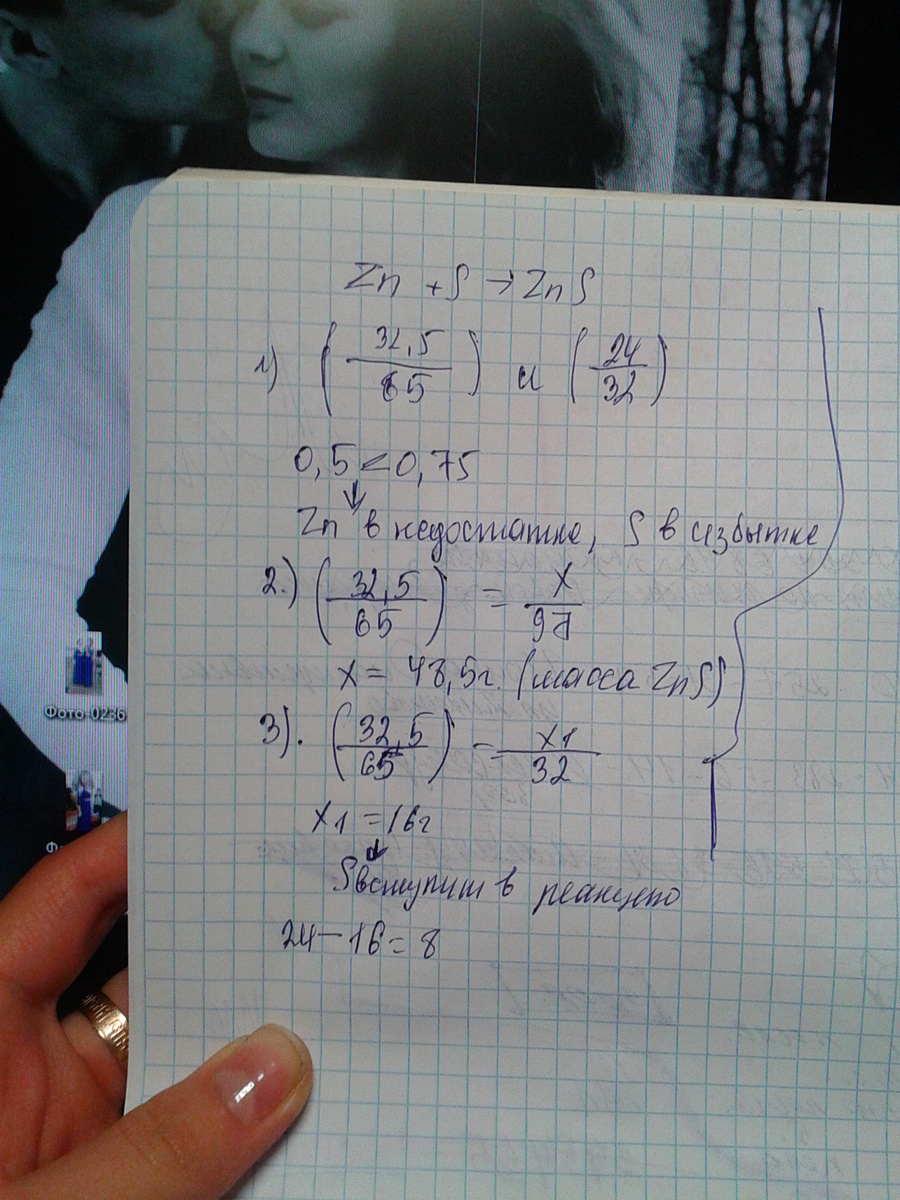 Zn + S → ZnS
1) (32,5/65) и (24/32)
0,5 < 0,75
Zn в недостатке, S в избытке
2.) (32,5/65) = x/97
x = 48,5г. (масса ZnS)
3). (32,5/65) = x1/32
x1 = 16г
S вступит в реакцию
24 – 16 = 8
Фото-0236